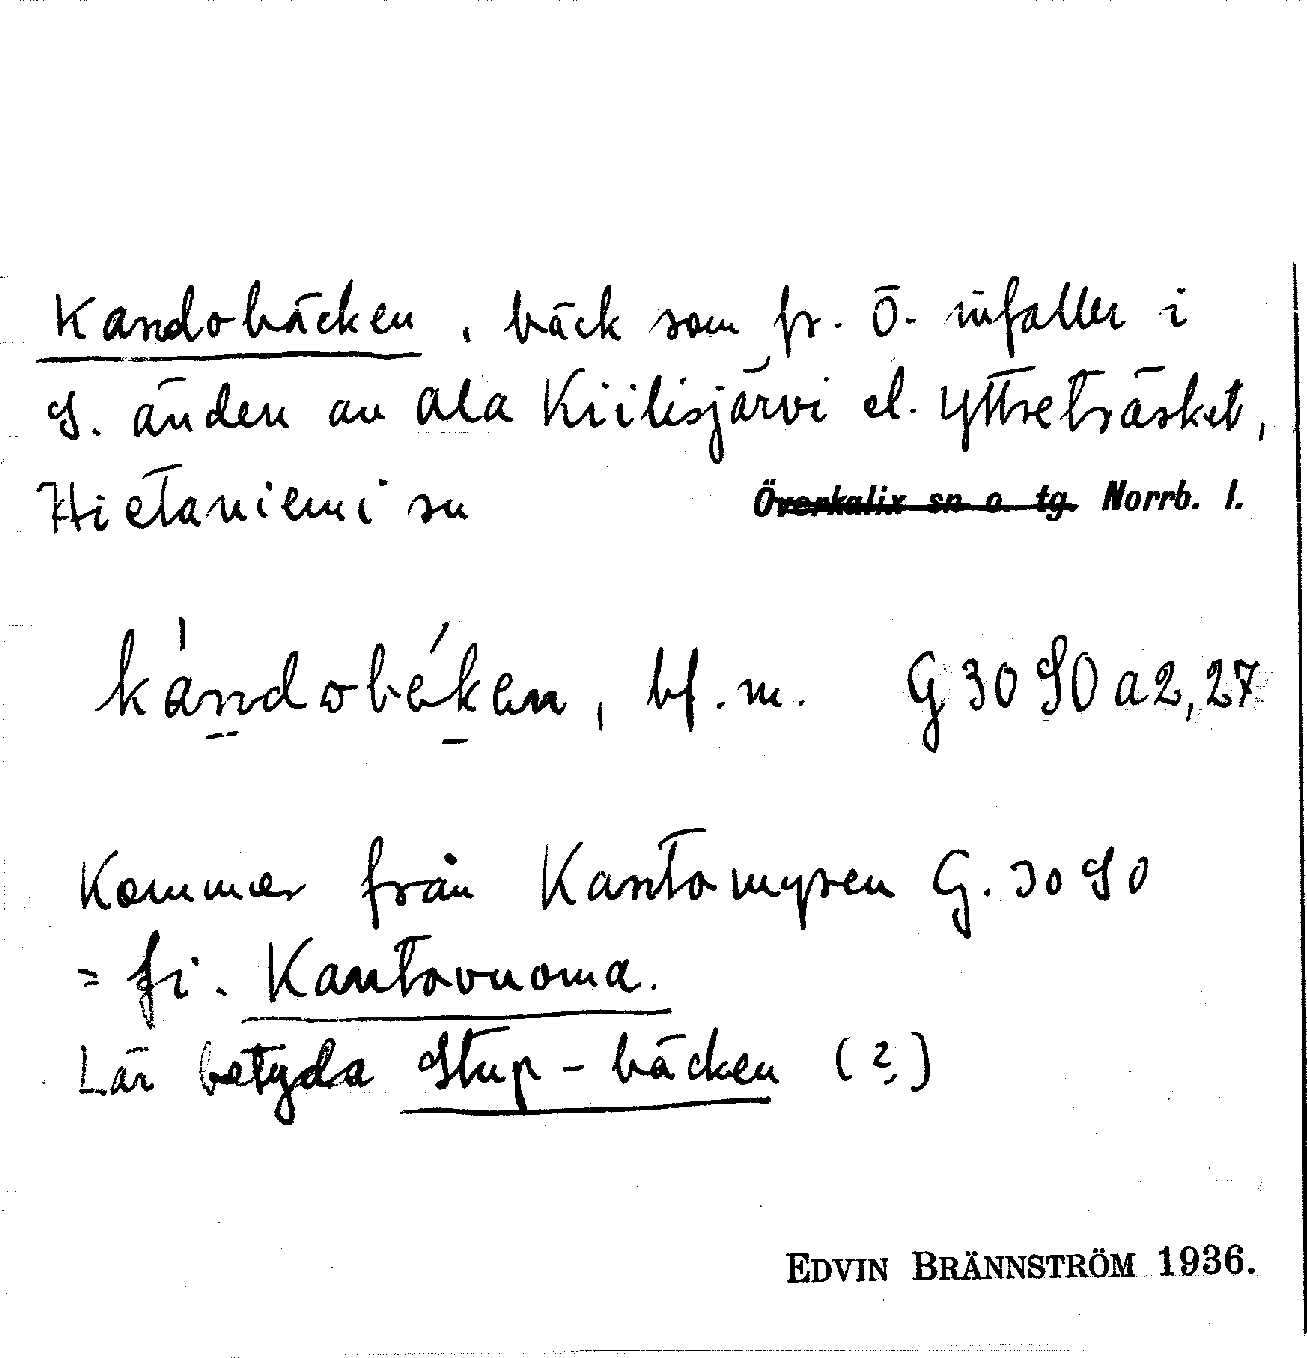 Kandobäcken, bäck som fr. Ö. infaller i
S. änden av Ala Kiilisjärvi el. Yttreträsket,
Hietaniemi sn Överkalix sn o. tg. Norrb. l.
kándobéken, bf. m. G 30 SO a2, 27
Kommer från Kantomyren G. 30 SO
= fi. Kantovuoma.
Lär betyda Stup-bäcken (?)
EDVIN BRÄNNSTRÖM 1936.